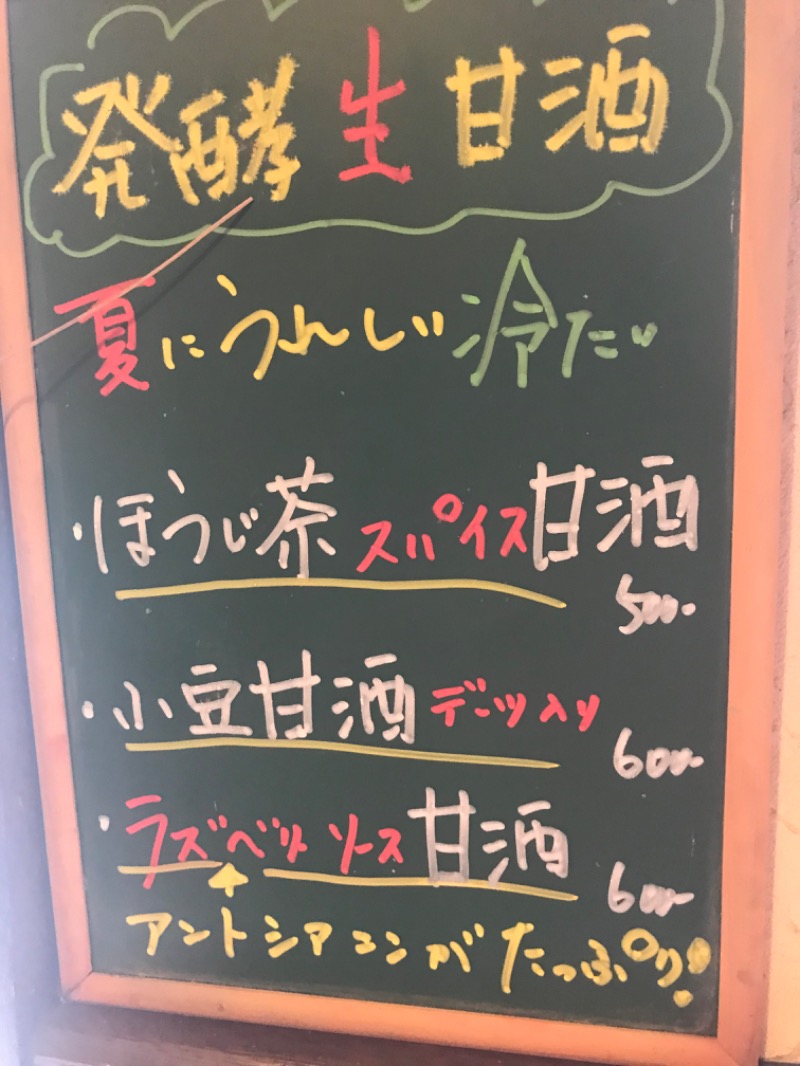 発酵生甘酒
夏にうれしい冷だ
・ほうじ茶スパイス甘酒
500-
・小豆甘酒デーツ入り
600-
・ラズベリーソース甘酒
600-
アントシアニンがたっぷり!